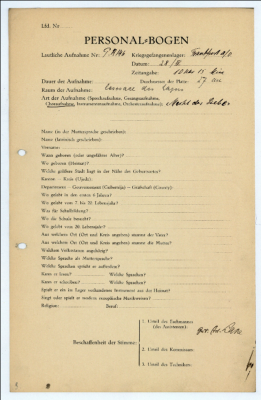 Lfd. Nr.
PERSONAL-BOGEN
Lautliche Aufnahme Nr. Kriegsgefangenenlager: Frankfurt a/O
Datum:
Zeitangabe: 10 Uhr 15 Min
Dauer der Aufnahme: Durchmesser der Platte: 27 cm
Raum der Aufnahme: des Lagers
Art der Aufnahme (Sprechaufnahme, Gesangsaufnahme,
Choraufnahme, Instrumentenaufnahme, Orchesteraufnahme):
Name (in der Muttersprache geschrieben):
Name (lateinisch geschrieben):
Vorname:
Wann geboren (oder ungefähres Alter)?
Wo geboren (Heimat)?
Welche größere Stadt liegt in der Nähe des Geburtsortes?
Kanton — Kreis (Ujedz):
Departement — Gouvernement (Gubernija) — Grafschaft (County):
Wo gelebt in den ersten 6 Jahren?
Wo gelebt vom 7. bis 20. Lebensjahr?
Was für Schulbildung?
Wo die Schule besucht?
Wo gelebt vom 20. Lebensjahr?
Aus welchem Ort (Ort und Kreis angeben) stammt der Vater?
Aus welchem Ort (Ort und Kreis angeben) stammt die Mutter?
Welchem Volksstamm angehörig?
Welche Sprache als Muttersprache?
Welche Sprachen spricht er außerdem?
Kann er lesen? Welche Sprachen?
Kann er schreiben? Welche Sprachen?
Spielt er ein im Lager vorhandenes Instrument aus der Heimat?
Singt oder spielt er moderne europäische Musikweisen?
Religion: Beruf:
1. Urteil des Fachmannes
(des Assistenten):
Beschaffenheit der Stimme:
2. Urteil des Kommissars:
3. Urteil des Technikers: